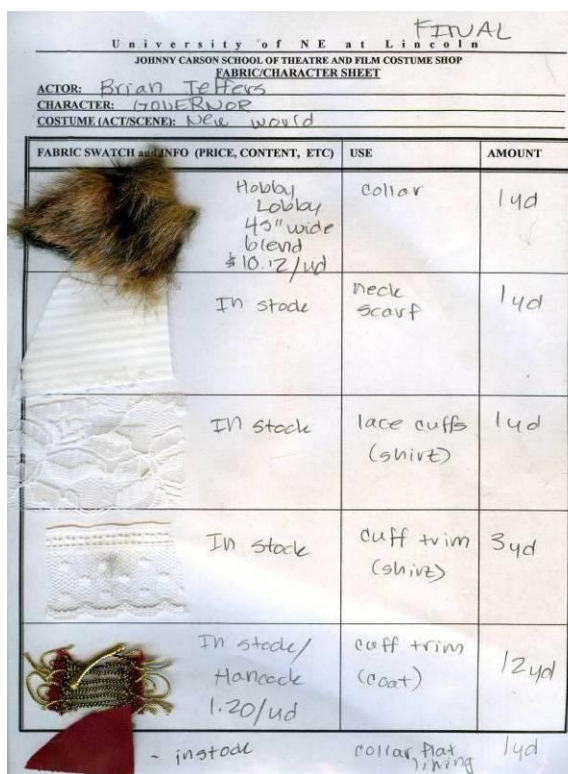 FINAL
University of NE at Lincoln
JOHNNY CARSON SCHOOL OF THEATRE AND FILM COSTUME SHOP
FABRIC/CHARACTER SHEET
ACTOR: Brian Jeffers
CHARACTER: GOVERNOR
COSTUME (ACT/SCENE): New World
FABRIC SWATCH and INFO (PRICE, CONTENT, ETC) USE AMOUNT
Hobby collar 1yd
Lobby
45" wide
blend
$10.12/yd
In stock neck 1yd
scarf
In stock lace cuffs 1yd
(shirt)
In stock cuff trim 3yd
(shirt)
In stock/ cuff trim 12yd
Hancock (coat)
1.20/yd
- instock collar flat 1yd
lining